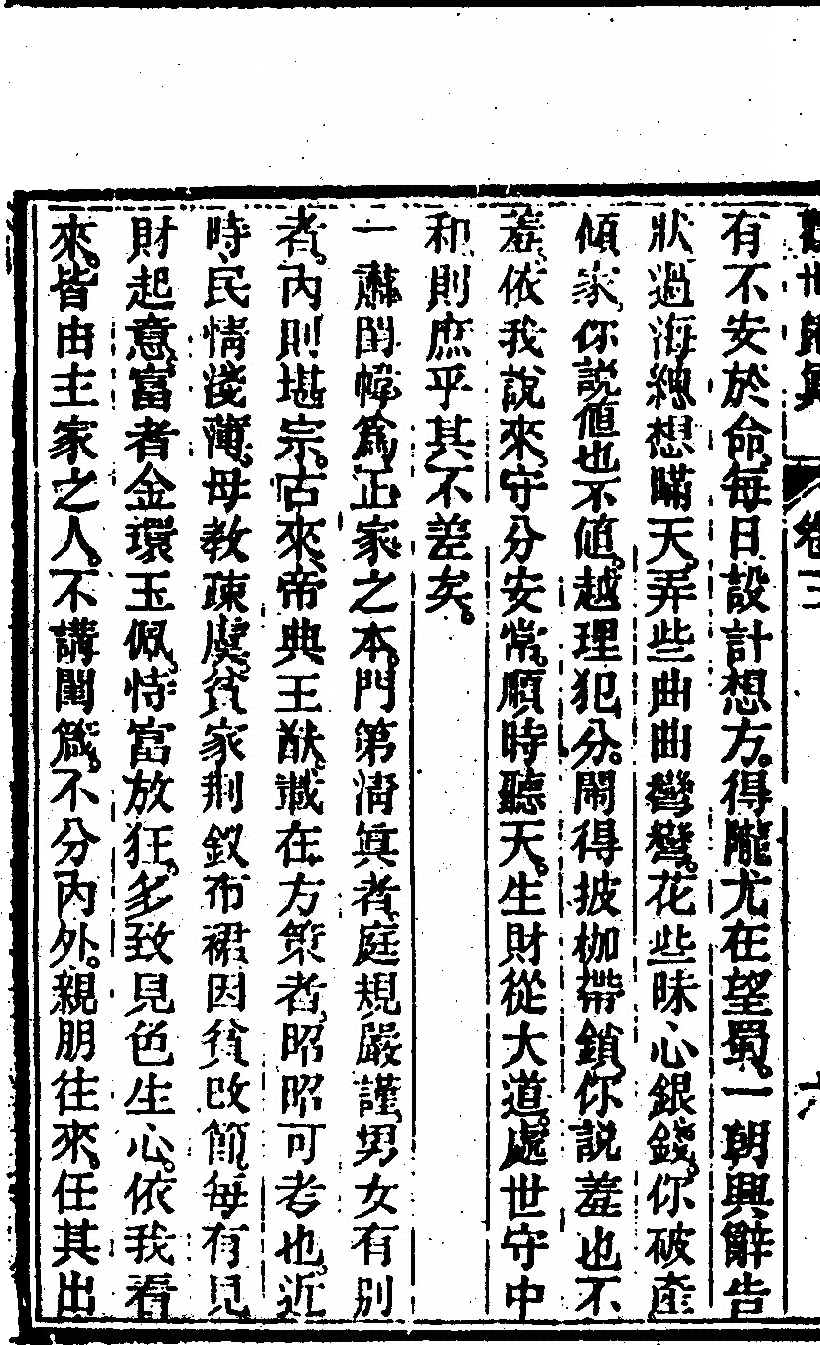 卷三
有不安於命每日設計想方。得隴尤在望蜀。一朝興辭告
狀過海總想瞞天。弄些曲曲彎彎。花些昧心銀錢。你破產
傾家。你説値也不値。越理犯分。鬧得披枷帶鎖。你説羞也不
羞。依我説來。守分安常。順時聽天。生財從大道。處世守中
和。則庶乎其不差矣。
一肅閨幃爲正家之本。門第淸眞者。庭規嚴謹。男女有別
者。內則堪宗。古來。帝典王猷。載在方策者。昭昭可考也。近
時。民情淺薄。母教疎虞。貧家荆釵布裙。因貧改節。每有見
財起意。富者金環玉佩。恃富放狂。多致見色生心。依我看
來。皆由主家之人。不講閨箴。不分內外。親朋往來。任其出